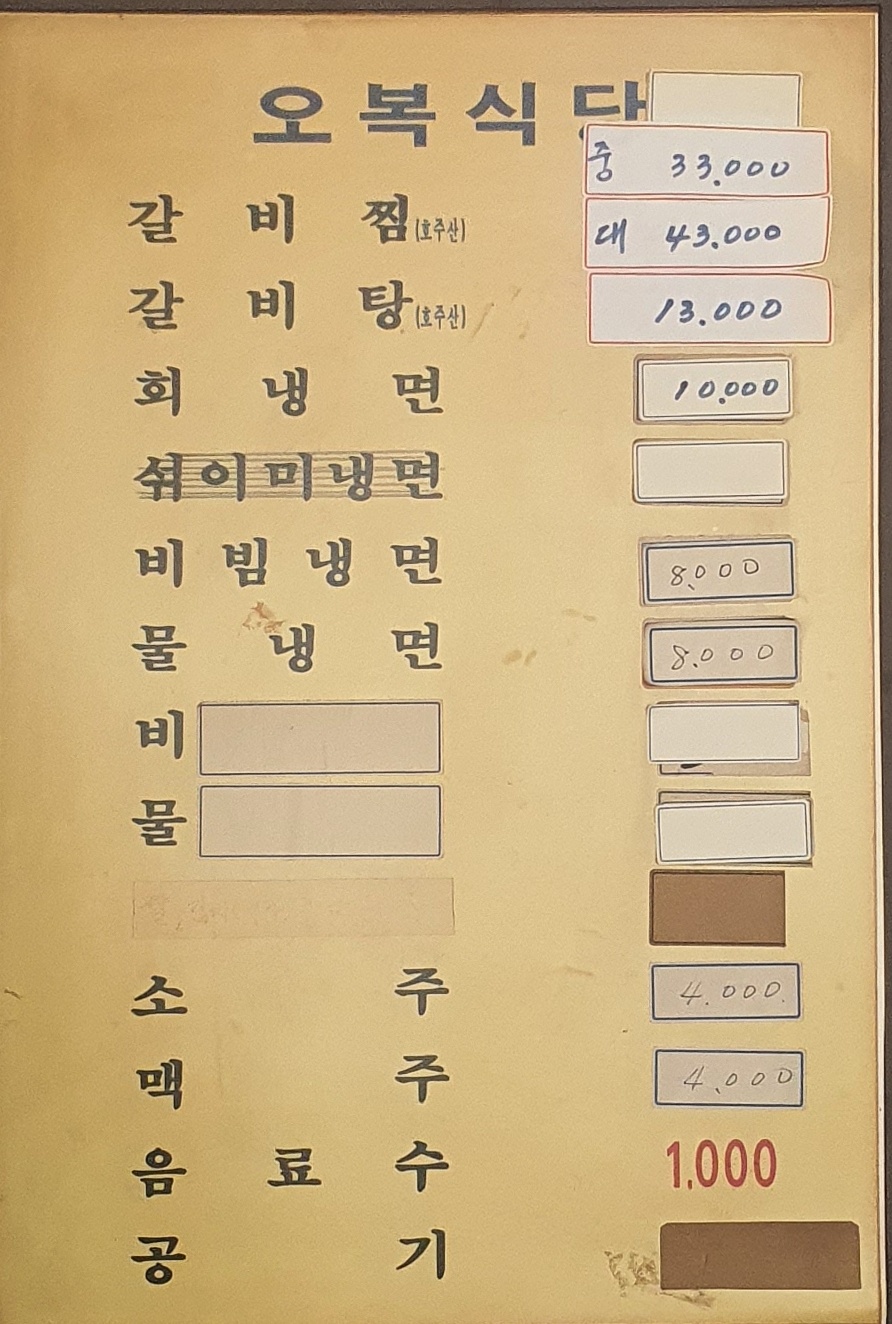 오복식당
중 33.000
갈비찜(호주산) 대 43.000
갈비탕(호주산) 13.000
회냉면 10.000
쉬이미냉면
비빔냉면 8.000
물냉면 8.000
비
물
소주 4.000.
맥주 4.000
음료수 1.000
공기